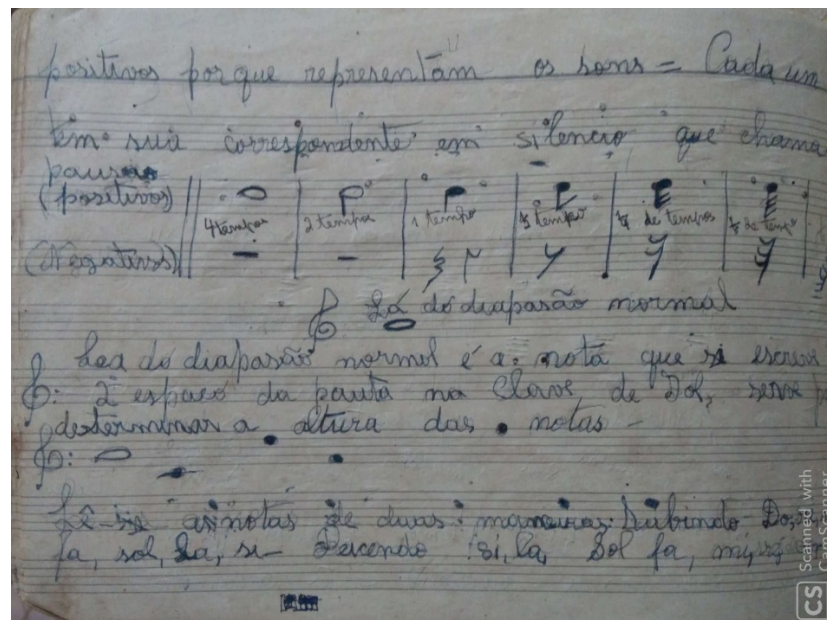 positivos porque representam os sons = Cada um
tem sua correspondente em silencio que chama
pausas
(positivos)
4 tempos 2 tempos 1 tempo ½ tempo ¼ de tempos ⅛ de tempo
(Negativos)
Lá do diapasão normal
Laa do diapasão normal é a nota que si escreve
2 espaço da pauta na Clave, de Sol, serve
determinar a altura das notas -
Lê-se as notas de duas maneiras: Subindo Do,
fa, sol, La, si - Descendo si, la, Sol fa, mi, ré
Scanned with
CamScanner
CS